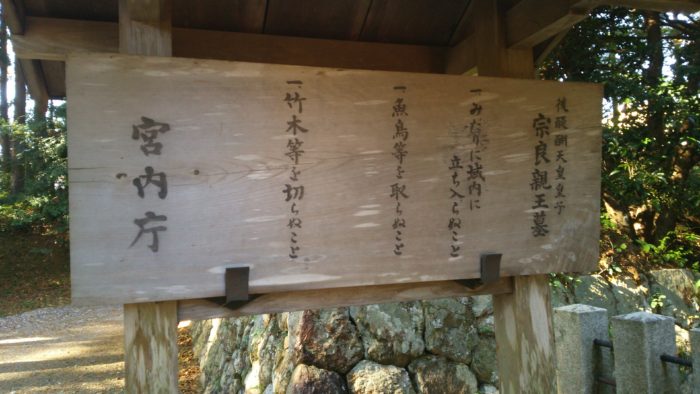 後醍醐天皇皇子
宗良親王墓
一みだりに域内に
立ち入らぬこと
一魚鳥等を取らぬこと
一竹木等を切らぬこと
宮内庁